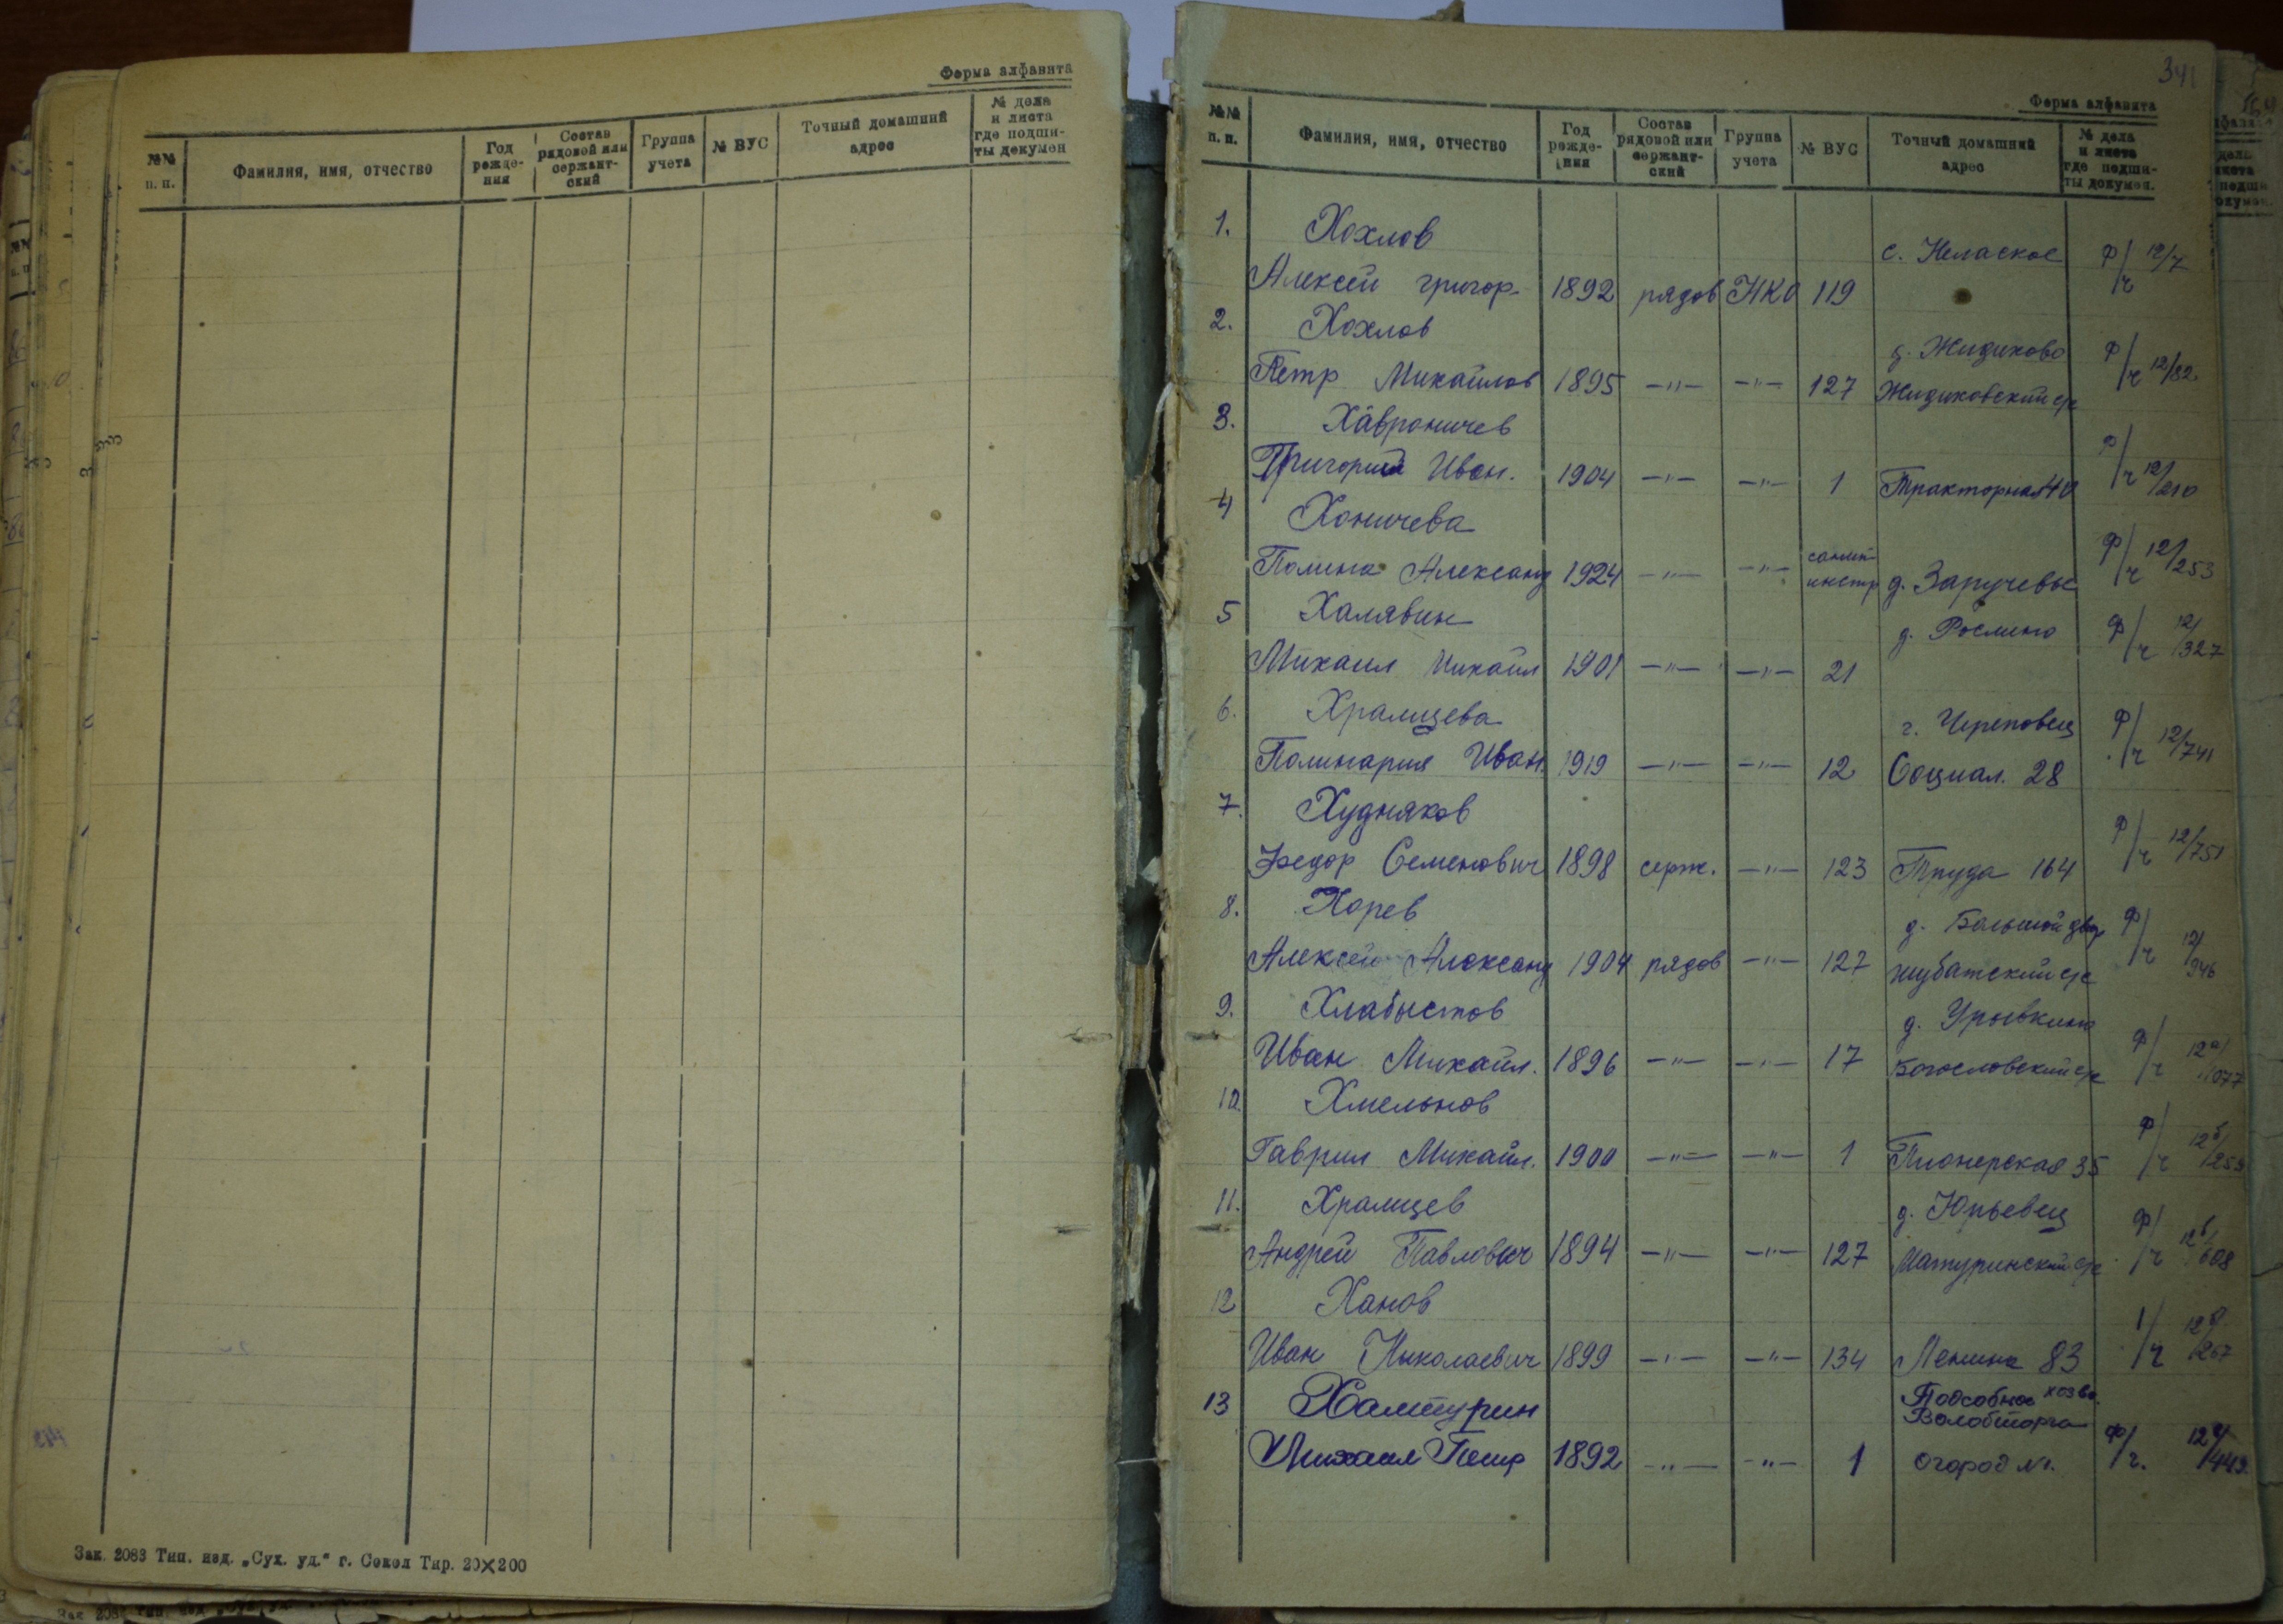 Форма алфавита
№№ п. п. Фамилия, имя, отчество Год рожде-ния Состав рядовой или сержант-ский Группа учета № ВУС Точный домашний адрес № дела и листа где подши-ты докумен
Зак. 2083 Тип. изд. „Сух. уд.“ г. Сокол Тир. 20×200
341
Форма алфавита
№№ п. п. Фамилия, имя, отчество Год рожде-ния Состав рядовой или сержант-ский Группа учета № ВУС Точный домашний адрес № дела и листа где подши-ты докумен.
1. Хохлов с. Нелаское ф/ч 12/7
Алексей григор. 1892 рядов НКО 119
2. Хохлов д. Жидихово ф/ч 12/82
Петр Михайлов 1895 —"— —"— 127 Жидиховский с/с
3. Хавроничев
Григорий Иван. 1904 —"— —"— 1 Тракторная 40 ф/ч 12/210
4 Хоничева
Полина Александ 1924 —"— —"— санин-инстр д. Заручевье ф/ч 12/253
5 Халявин д. Рослино ф/ч 12/327
Михаил Михайл 1901 —"— —"— 21
6. Храмцева г. Череповец ф/ч 12/741
Полинария Иван. 1919 —"— —"— 12 Социал. 28
7. Худняков
Федор Семенович 1898 серж. —"— 123 Труда 164 ф/ч 12/751
8. Хорев д. Большой двор ф/ч 12/946
Алексей Александ 1904 рядов —"— 127 шубатский с/с
9. Хлабыстов д. Урывкино
Иван Михайл. 1896 —"— —"— 17 Богословский с/с ф/ч 12а/1077
10 Хмельнов
Гаврил Михайл. 1900 —"— —"— 1 Пионерская 35 ф/ч 12б/259
11. Храмцев д. Юрьевец
Андрей Павлович 1894 —"— —"— 127 Матуринский с/с ф/ч 12б/608
12 Ханов
Иван Николаевич 1899 —"— —"— 134 Ленина 83
13 Халтурин Подсобное хоз во Волобторга
Михаил Петр 1892 —"— —"— 1 огород №1. ф/ч.